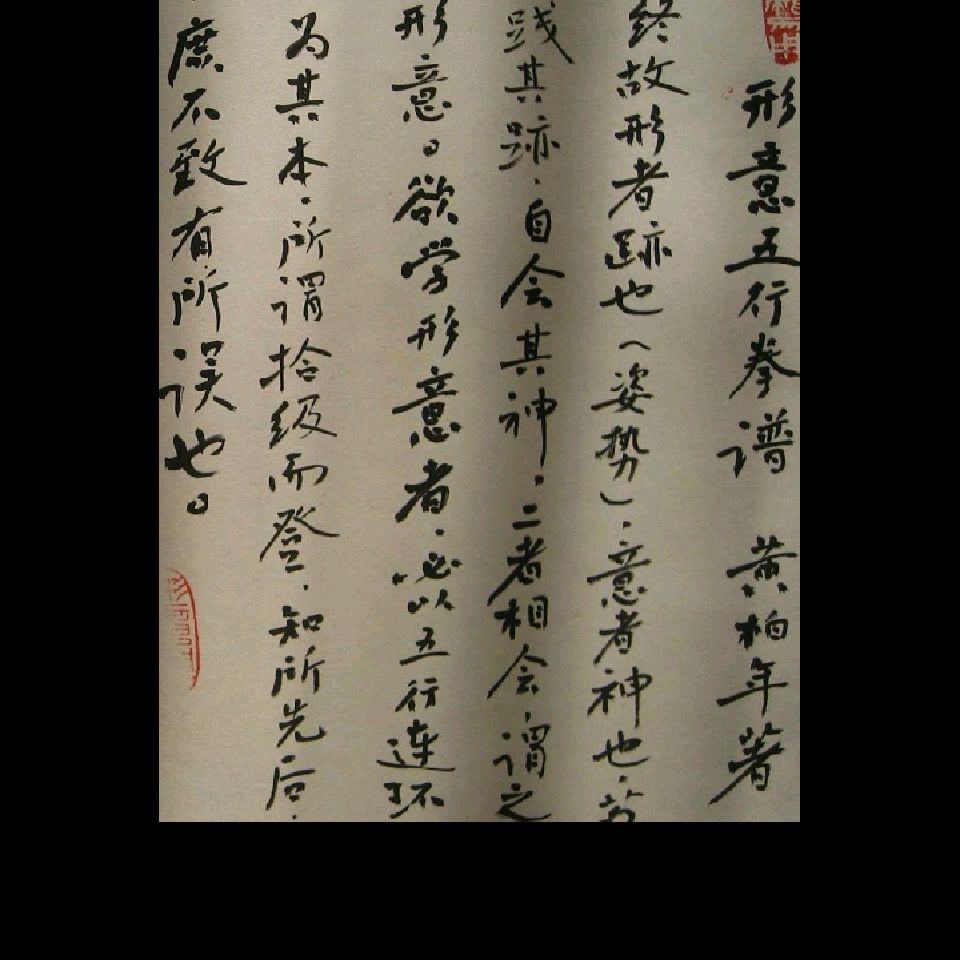 形意五行拳谱 黄柏年著
终故形者跡也(姿势)，意者神也，若
践其跡，自会其神。二者相会，谓之
形意。欲学形意者，必以五行连环
为其本，所谓拾级而登，知所先后，
庶不致有所误也。